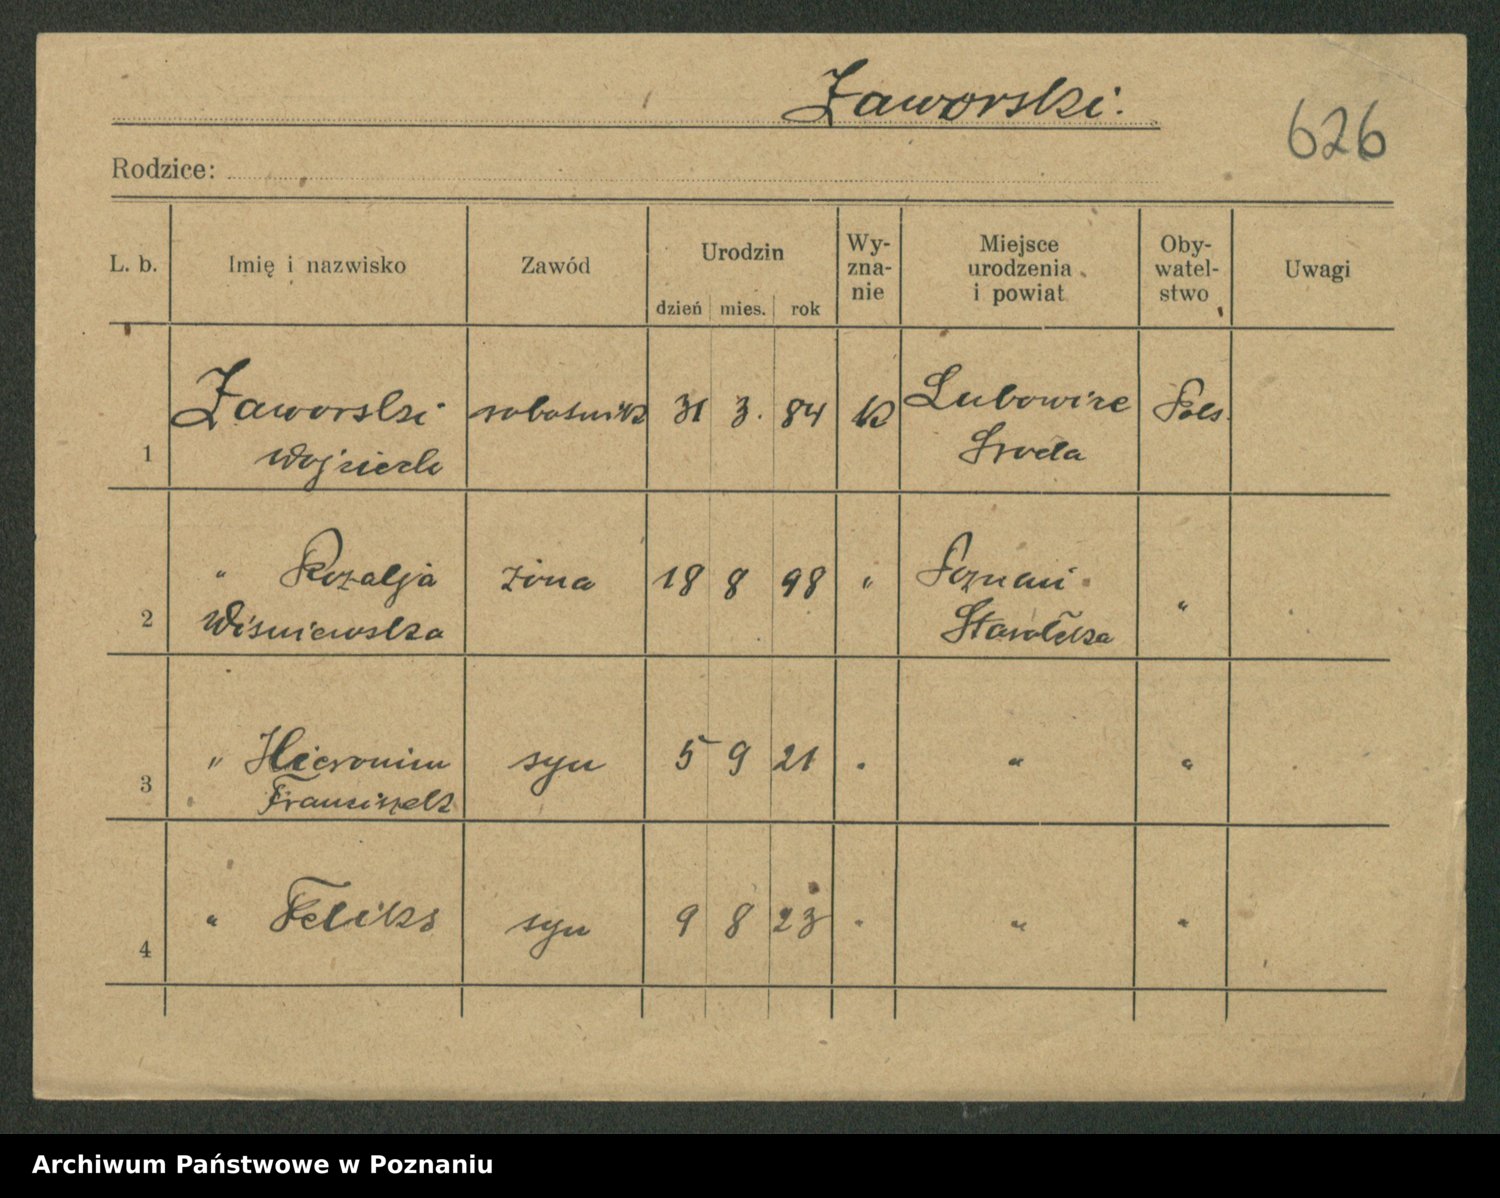 Jaworski.
626
Rodzice:
L. b. Imię i nazwisko Zawód Urodzin dzień mies. rok Wy-zna-nie Miejsce urodzenia i powiat Oby-watel-stwo Uwagi
1 Jaworski robotnik 31 3. 84 k Lubowice Pols.
Wojciech Środa
2 " Rozalja żona 18 8 98 " Poznań "
Wiśniewska Starołęka
3 " Hieronim syn 5 9 21 " " "
Franciszek
4 " Feliks syn 9 8 23 " " "
Archiwum Państwowe w Poznaniu